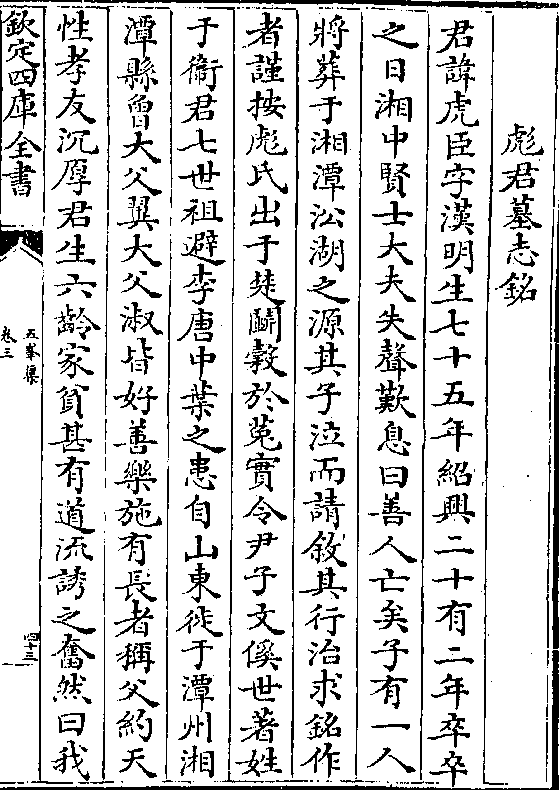 彪君墓志銘
君諱虎臣字漢明生七十五年紹興二十有二年卒卒
之日湘中賢士大夫失聲歎息曰善人亡矣子有一人
將葬于湘潭㳂湖之源其子泣而請敘其行治求銘作
者謹按彪氏出于楚鬭穀於菟實令尹子文傒世著姓
于衞君七世祖避李唐中葉之患自山東徙于潭州湘
潭縣曾大父翼大父淑皆好善樂施有長者稱父約天
性孝友沉厚君生六齡家貧甚有道流誘之奮然曰我
欽定四庫全書
五峯集
卷三
四十三